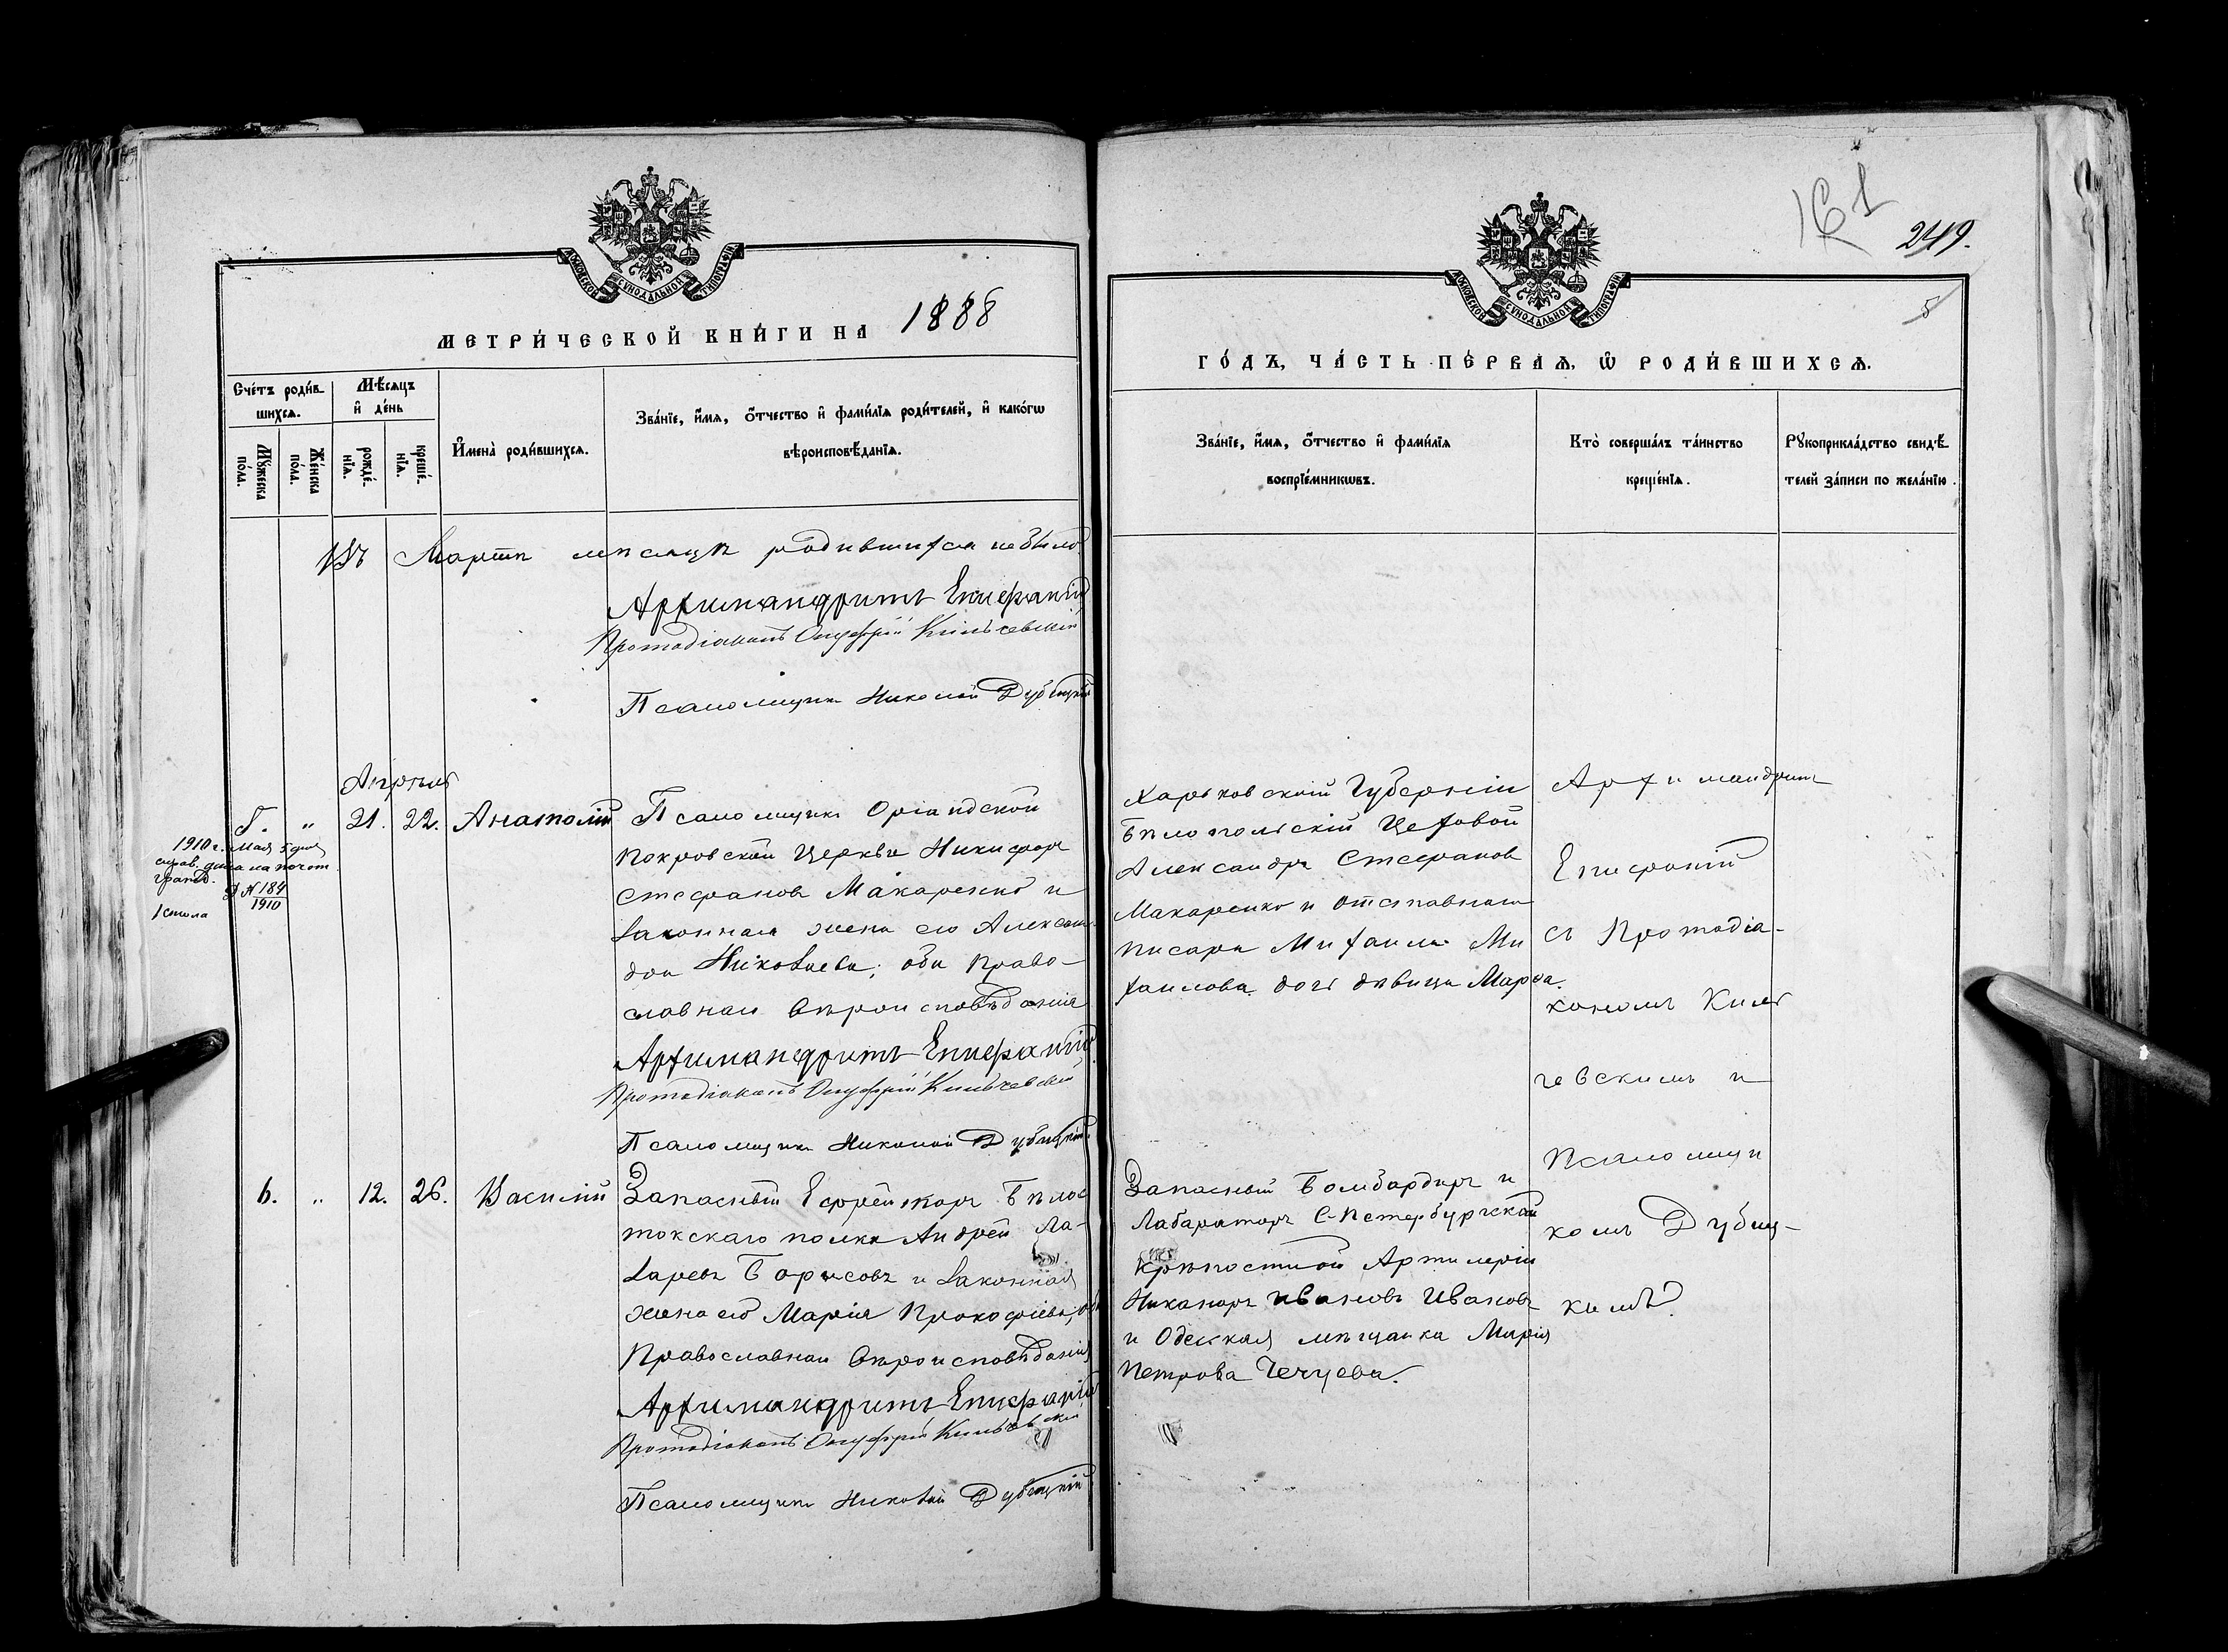 МОСКОВСКОЙ СѴНОДАЛЬНОЙ ТИПОГРАФІИ
МЕТРИ́ЧЕСКОЙ КНИ́ГИ НА 1888
Сче́тъ роди́в-
шихсѧ.
Мѣ́сѧцъ
и҆ де́нь
Мꙋ́жеска
по́ла.
Же́нска
по́ла.
рожде́-
нїѧ.
креще́-
нїѧ.
И҆мена̀ роди́вшихсѧ.
Зва́нїе, и҆́мѧ, ѻ҆́тчество и҆ фами́лїѧ роди́телей, и҆ како́гѡ
вѣроисповѣ́данїѧ.
Въ Мартѣ мѣсяцѣ родившихся небыло
Архимандритъ Епифаній
Протодіаконъ Онуфрій Кильчевскій
Псаломщикъ Николай Дубицкій
Апрѣль
5. " 21. 22. Анатолій
Псаломщикъ Оріандской
Покровской Церкви Никифоръ
Стефановъ Макаренко и
Законная жена его Алексан-
дра Николаева; оба Право-
славнаго Вѣроисповѣданія
Архимандритъ Епифаній
Протодіаконъ Онуфрій Кильчевскій
Псаломщикъ Николай Дубицкій
1910 г. Мая 5 дня
справ. дана на почот.
гражд.
Д № 184
1910
1 стола
6. " 12. 26. Василій
Запасный Ефрейторъ Бѣлос
токскаго полка Андрей Ла-
заревъ Борисовъ и Законная
жена его Марія Прокофіева; оба
Православнаго Вѣроисповѣданія
Архимандритъ Епифаній
Протодіаконъ Онуфрій Кильчевскій
Псаломщикъ Николай Дубицкій
161
249.
5
МОСКОВСКОЙ СѴНОДАЛЬНОЙ ТИПОГРАФІИ
ГО́ДЪ, ЧА́СТЬ ПЕ́РВАѦ, Ѡ҆ РОДИ́ВШИХСѦ.
Зва́нїе, и҆́мѧ, ѻ҆́тчество и҆ фами́лїѧ
воспрїе́мникѡвъ.
Кто̀ соверша́лъ та́инство
креще́нїѧ.
Рꙋкоприкла́дство свидѣ́-
телей за́писи по жела́нїю.
Харьковской Губерніи
Бѣлопольскій Цеховой
Александръ Стефановъ
Макаренко и отставнаго
писаря Михаила Ми
хаилова дочь дѣвица Марѳа.
Архимандритъ
Епифаній
съ Протодіа-
кономъ Киль
чевскимъ и
Псаломщи
комъ Дубиц-
кимъ
Запасный Бомбардиръ и
Лабараторъ С-Петербургской
Крѣпостной Артилеріи
Никаноръ Ивановъ Ивановъ
и Одесская мѣщанка Марія
Петрова Чечуева.